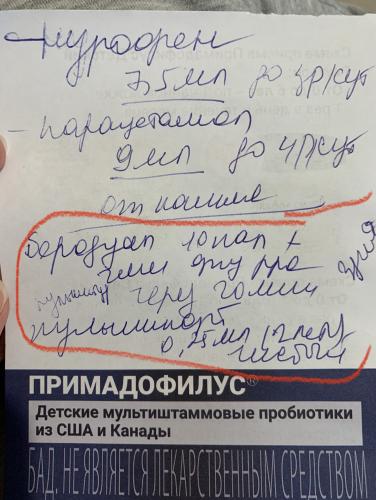 - нурофен
7,5 мл до 3 р/сут
- парацетамол
9 мл до 4 р/сут
от кашля
беродуал 10 кап +
2 мл физ рра
через 20 мин
пульмикорт
0,25 мл
чистый
ПРИМАДОФИЛУС®
Детские мультиштаммовые пробиотики
из США и Канады
БАД. НЕ ЯВЛЯЕТСЯ ЛЕКАРСТВЕННЫМ СРЕДСТВОМ